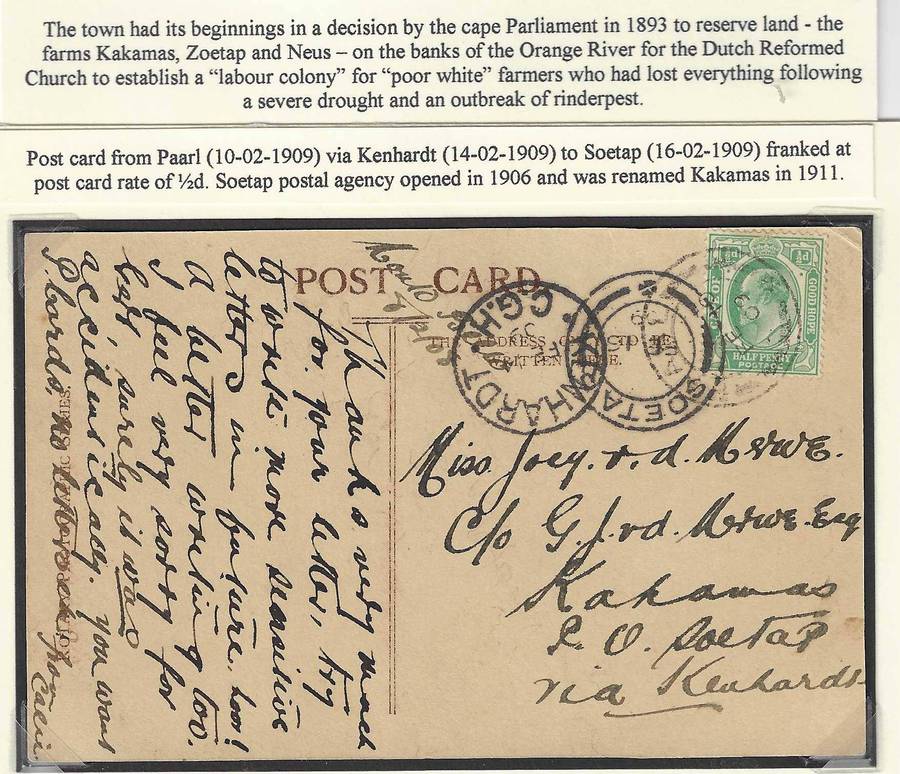 The town had its beginnings in a decision by the cape Parliament in 1893 to reserve land - the
farms Kakamas, Zoetap and Neus – on the banks of the Orange River for the Dutch Reformed
Church to establish a “labour colony” for “poor white” farmers who had lost everything following
a severe drought and an outbreak of rinderpest.
Post card from Paarl (10-02-1909) via Kenhardt (14-02-1909) to Soetap (16-02-1909) franked at
post card rate of ½d. Soetap postal agency opened in 1906 and was renamed Kakamas in 1911.
POST CARD
THE ADDRESS ONLY TO BE
WRITTEN HERE.
KENHARDT C.G.H.
SOETAP
GOOD HOPE
½d
HALF PENNY
POSTAGE
Thanks very much
for your letter, try
to write more sensative
letters in future.
A better writing too.
I feel very sorry for
surely is was
accidentically. you want
Miss Joey. v. d. Merwe.
C/o G. J. vd. Merwe. Esq
Kakamas
P. O. Soetap
via Kenhardt